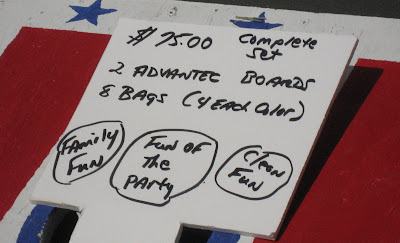 $75.00 Complete Set
2 ADVANTEC BOARDS
8 BAGS (4 EACH COLOR)
FAMILY FUN
FUN OF The PARTY
CLEAN FUN